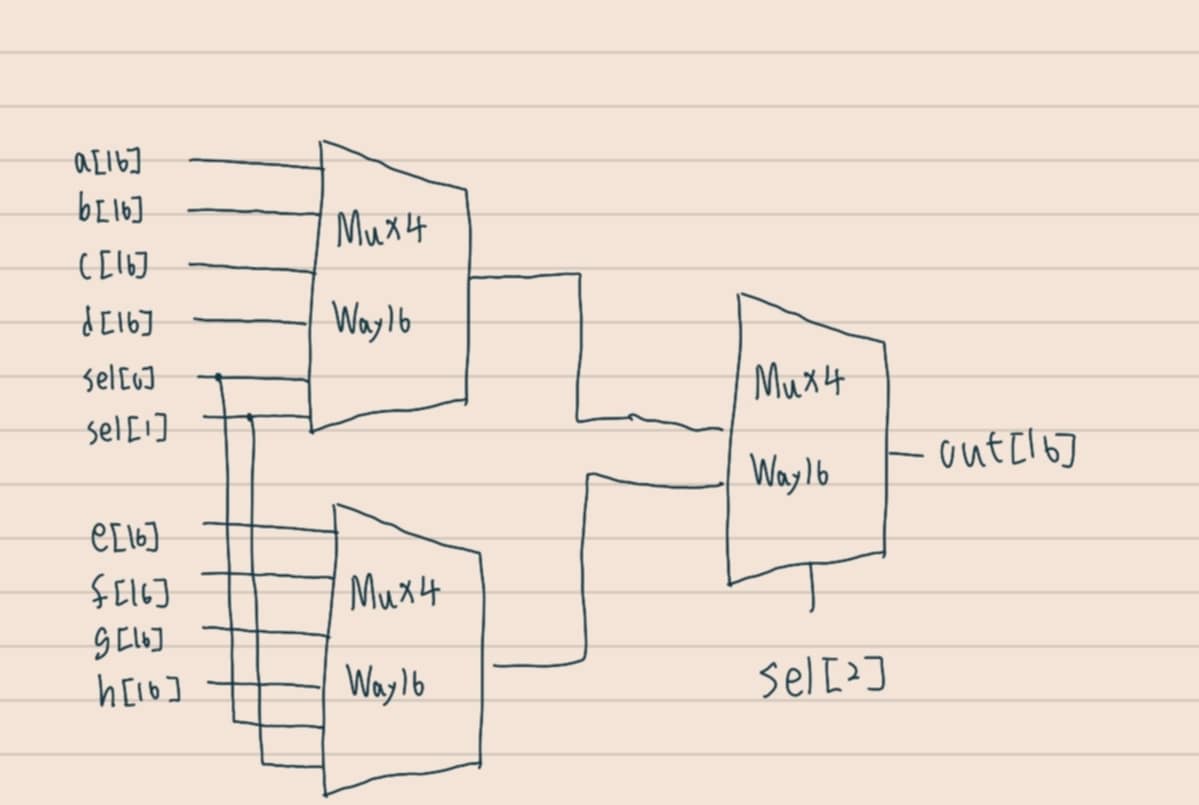 a[16]
b[16]
c[16]
d[16]
sel[0]
sel[1]
Mux4
Way16
e[16]
f[16]
g[16]
h[16]
Mux4
Way16
Mux4
Way16
out[16]
sel[2]